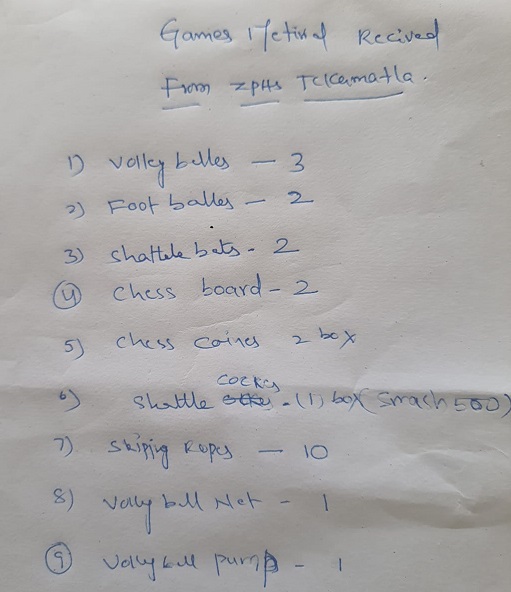 Games Recived
From ZPHS Tekamatla.
1) volley balles - 3
2) Foot balles - 2
3) shattele bats - 2
4) chess board - 2
5) chess coines 2 box
6) shattle cocks - (1) box (Smach 500)
7) skiping Ropes - 10
8) volly ball Net - 1
9) volly ball pump - 1